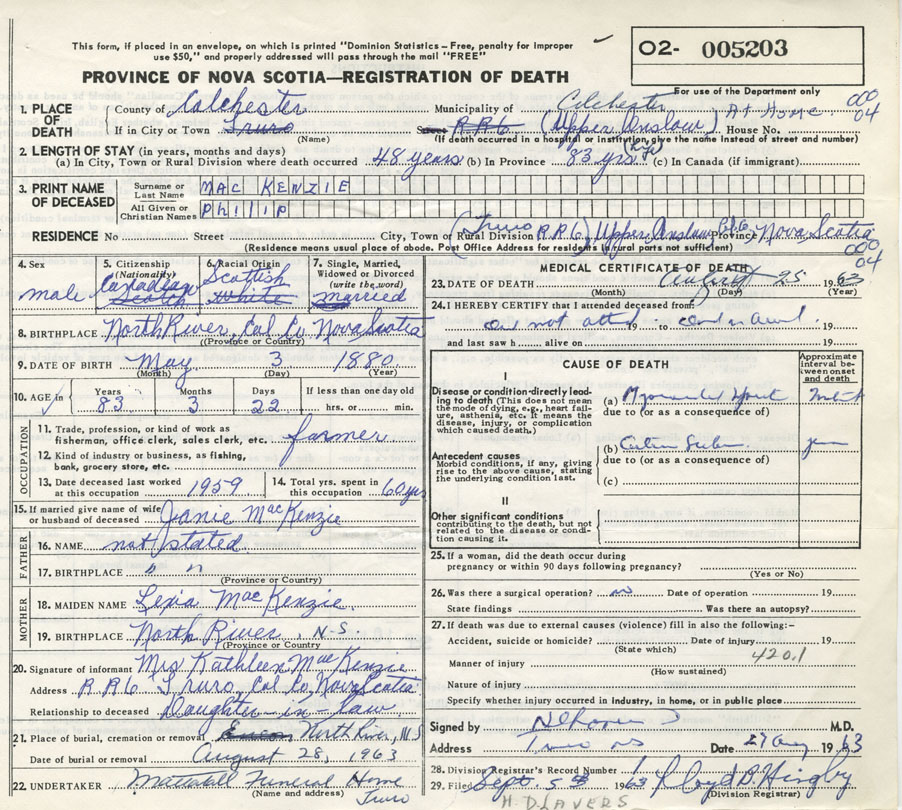 This form, if placed in an envelope, on which is printed "Dominion Statistics – Free, penalty for improper
use $50," and properly addressed will pass through the mail "FREE"
O2- 005203
PROVINCE OF NOVA SCOTIA—REGISTRATION OF DEATH
For use of the Department only
1. PLACE OF DEATH County of Colchester Municipality of Colchester At Home 000 04
If in City or Town Truro (Name) Street RR6 (Upper Onslow) House No.
(If death occurred in a hospital or institution, give the name instead of street and number)
2. LENGTH OF STAY (in years, months and days)
(a) In City, Town or Rural Division where death occurred 48 years (b) In Province 83 yrs (c) In Canada (if immigrant)
3. PRINT NAME OF DECEASED Surname or Last Name MAC KENZIE
All Given or Christian Names PhILIP
RESIDENCE No Street City, Town or Rural Division (Truro R.R.6) Upper Onslow Col. Co. Province Nova Scotia
(Residence means usual place of abode. Post Office Address for residents in rural part not sufficient)
000 04
4. Sex male
5. Citizenship (Nationality) Canadian Scotch
6. Racial Origin Scottish White
7. Single, Married, Widowed or Divorced (write the word) married
8. BIRTHPLACE North River, Col. Co. Nova Scotia
(Province or Country)
9. DATE OF BIRTH May 3 1880
(Month) (Day) (Year)
10. AGE in Years 83 Months 3 Days 22 If less than one day old hrs. or min.
OCCUPATION
11. Trade, profession, or kind of work as
fisherman, office clerk, sales clerk, etc. farmer
12. Kind of industry or business, as fishing,
bank, grocery store, etc.
13. Date deceased last worked at this occupation 1959
14. Total yrs. spent in this occupation 60 yrs
15. If married give name of wife
or husband of deceased Janie MacKenzie
FATHER
16. NAME not stated
17. BIRTHPLACE " "
(Province or Country)
MOTHER
18. MAIDEN NAME Lexia MacKenzie.
19. BIRTHPLACE North River, N.S.
(Province or Country)
20. Signature of informant Mrs Kathleen MacKenzie
Address RR6 Truro, Col Co, Nova Scotia
Relationship to deceased Daughter-in-law
21. Place of burial, cremation or removal North River, N S
Date of burial or removal August 28, 1963
22. UNDERTAKER Mattatall Funeral Home
(Name and address) Truro
MEDICAL CERTIFICATE OF DEATH
23. DATE OF DEATH August 25 1963
(Month) (Day) (Year)
24. I HEREBY CERTIFY that I attended deceased from
did not attend 19 to 19
and last saw h alive on 19
CAUSE OF DEATH
Approximate interval between onset and death
I
Disease or condition directly leading to death (This does not mean the mode of dying, e.g., heart failure, asthenia, etc. It means the disease, injury, or complication which caused death.)
(a)
due to (or as a consequence of)
Antecedent causes
Morbid conditions, if any, giving rise to the above cause, stating the underlying condition last.
(b)
due to (or as a consequence of)
(c)
II
Other significant conditions
contributing to the death, but not related to the disease or condition causing it.
25. If a woman, did the death occur during
pregnancy or within 90 days following pregnancy?
(Yes or No)
26. Was there a surgical operation? no Date of operation 19
State findings Was there an autopsy?
27. If death was due to external causes (violence) fill in also the following:–
Accident, suicide or homicide? Date of injury 19
(State which) 420.1
Manner of injury
(How sustained)
Nature of injury
Specify whether injury occurred in industry, in home, or in public place
Signed by M.D.
Address Truro NS Date 27 Aug 1963
28. Division Registrar's Record Number
29. Filed Sept. 5 1963
(Division Registrar)
H. D LAVERS